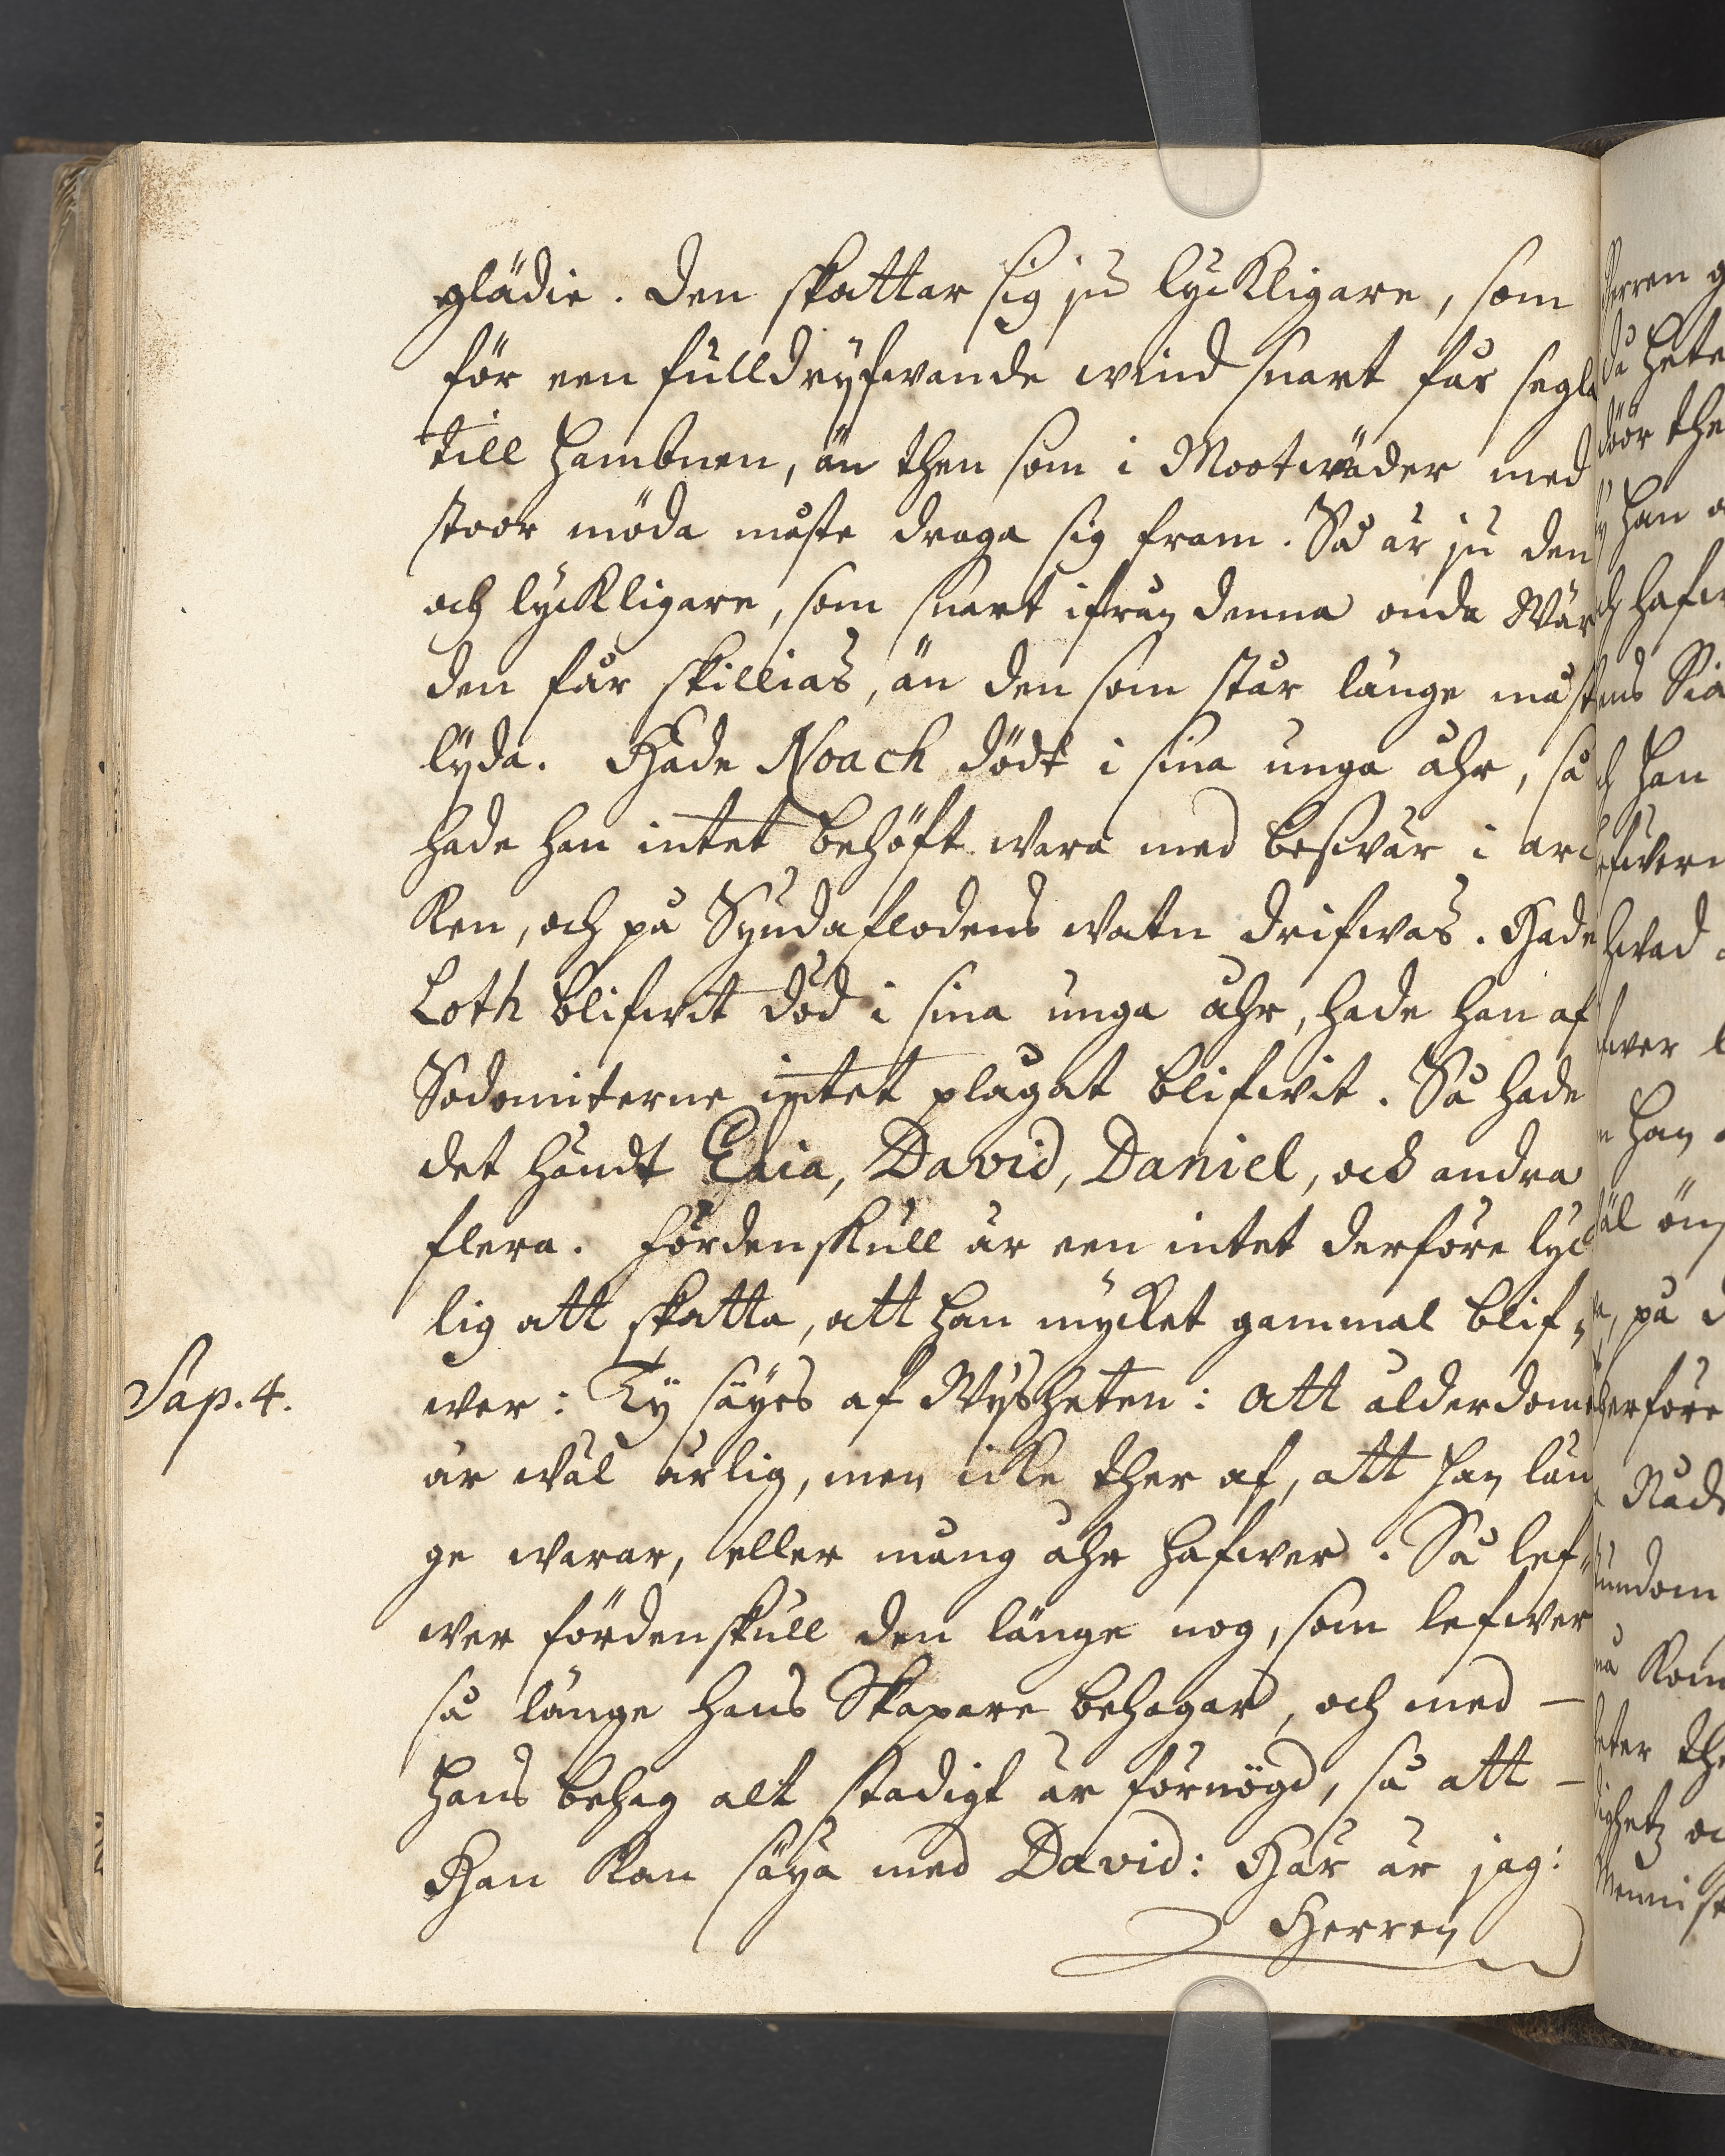 glädie. Den skattar sig ju lyckligare, som
för een fulldryfwande wind snart får segla
till Hambnen, än then som i Mootwäder med
stoor möda måste draga sig fram. Så är ju den
och lyckligare, som snart ifrån denna onda Wär
den får skillias, än den som står länge måst
lyda. Hade Noach dödt i sina unga åhr, så
hade han intet behöft wara med beswär i arc
ken, och på Syndaflodens watn drifwas. Hade
Loth blifwit död i sina unga åhr, hade han af
Sodomiterne intet plågat blifwit. Så hade
det händt Elia, David, Daniel, och andra
flera. Fördenskull är een intet derföre lyc
lig att skatta, att han mycket gammal blif„
Sap. 4.
wer: Ty säyes af Wysheten: Att ålderdome
är wäl ärlig, men icke ther af, att han län
ge warar, eller mång åhr hafwer. Så lef„
wer fördenskull den länge nog, som lefwer
så länge hans Skapare behagar, och med —
hans behag alt stadigt är förnögd, så att —
Han kan säya med David: Här är jag:
Herren